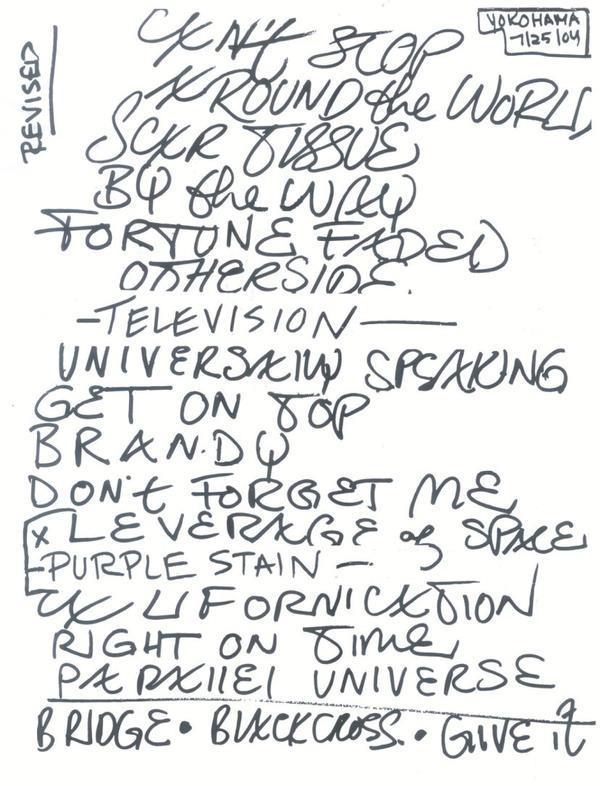 REVISED
YOKOHAMA
7/25/04
CAN't STOP
AROUND the WORLD
SCAR TISSUE
BY the WAY
FORTUNE FADED
OTHERSIDE.
-TELEVISION-
UNIVERSALLY SPEAKING
GET ON TOP
BRAN.DY
DON't FORGET ME
x LEVERAGE of SPACE
-PURPLE STAIN-
CALIFORNICATION
RIGHT ON TIME
PARALLEL UNIVERSE
BRIDGE • BLACKCROSS. • GIVE it